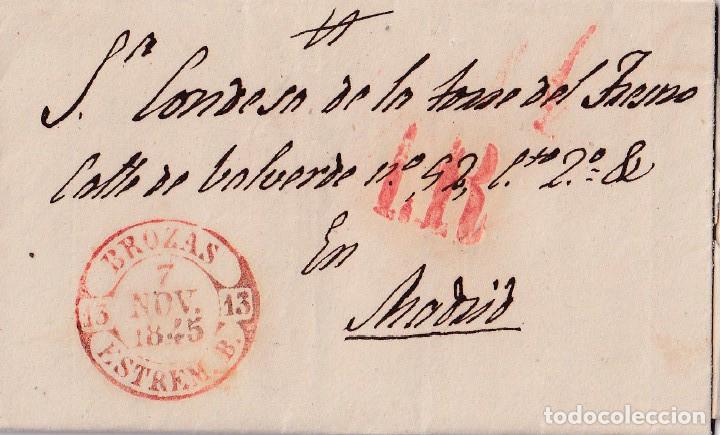 Sr. Condesa de la torre del Fresno
Calle de Valverde nº 52, Cto 2º &
En
Madrid
1.R
BROZAS
7
NOV.
1845
13 13
ESTREM. B.
todocoleccion
todocoleccion.net